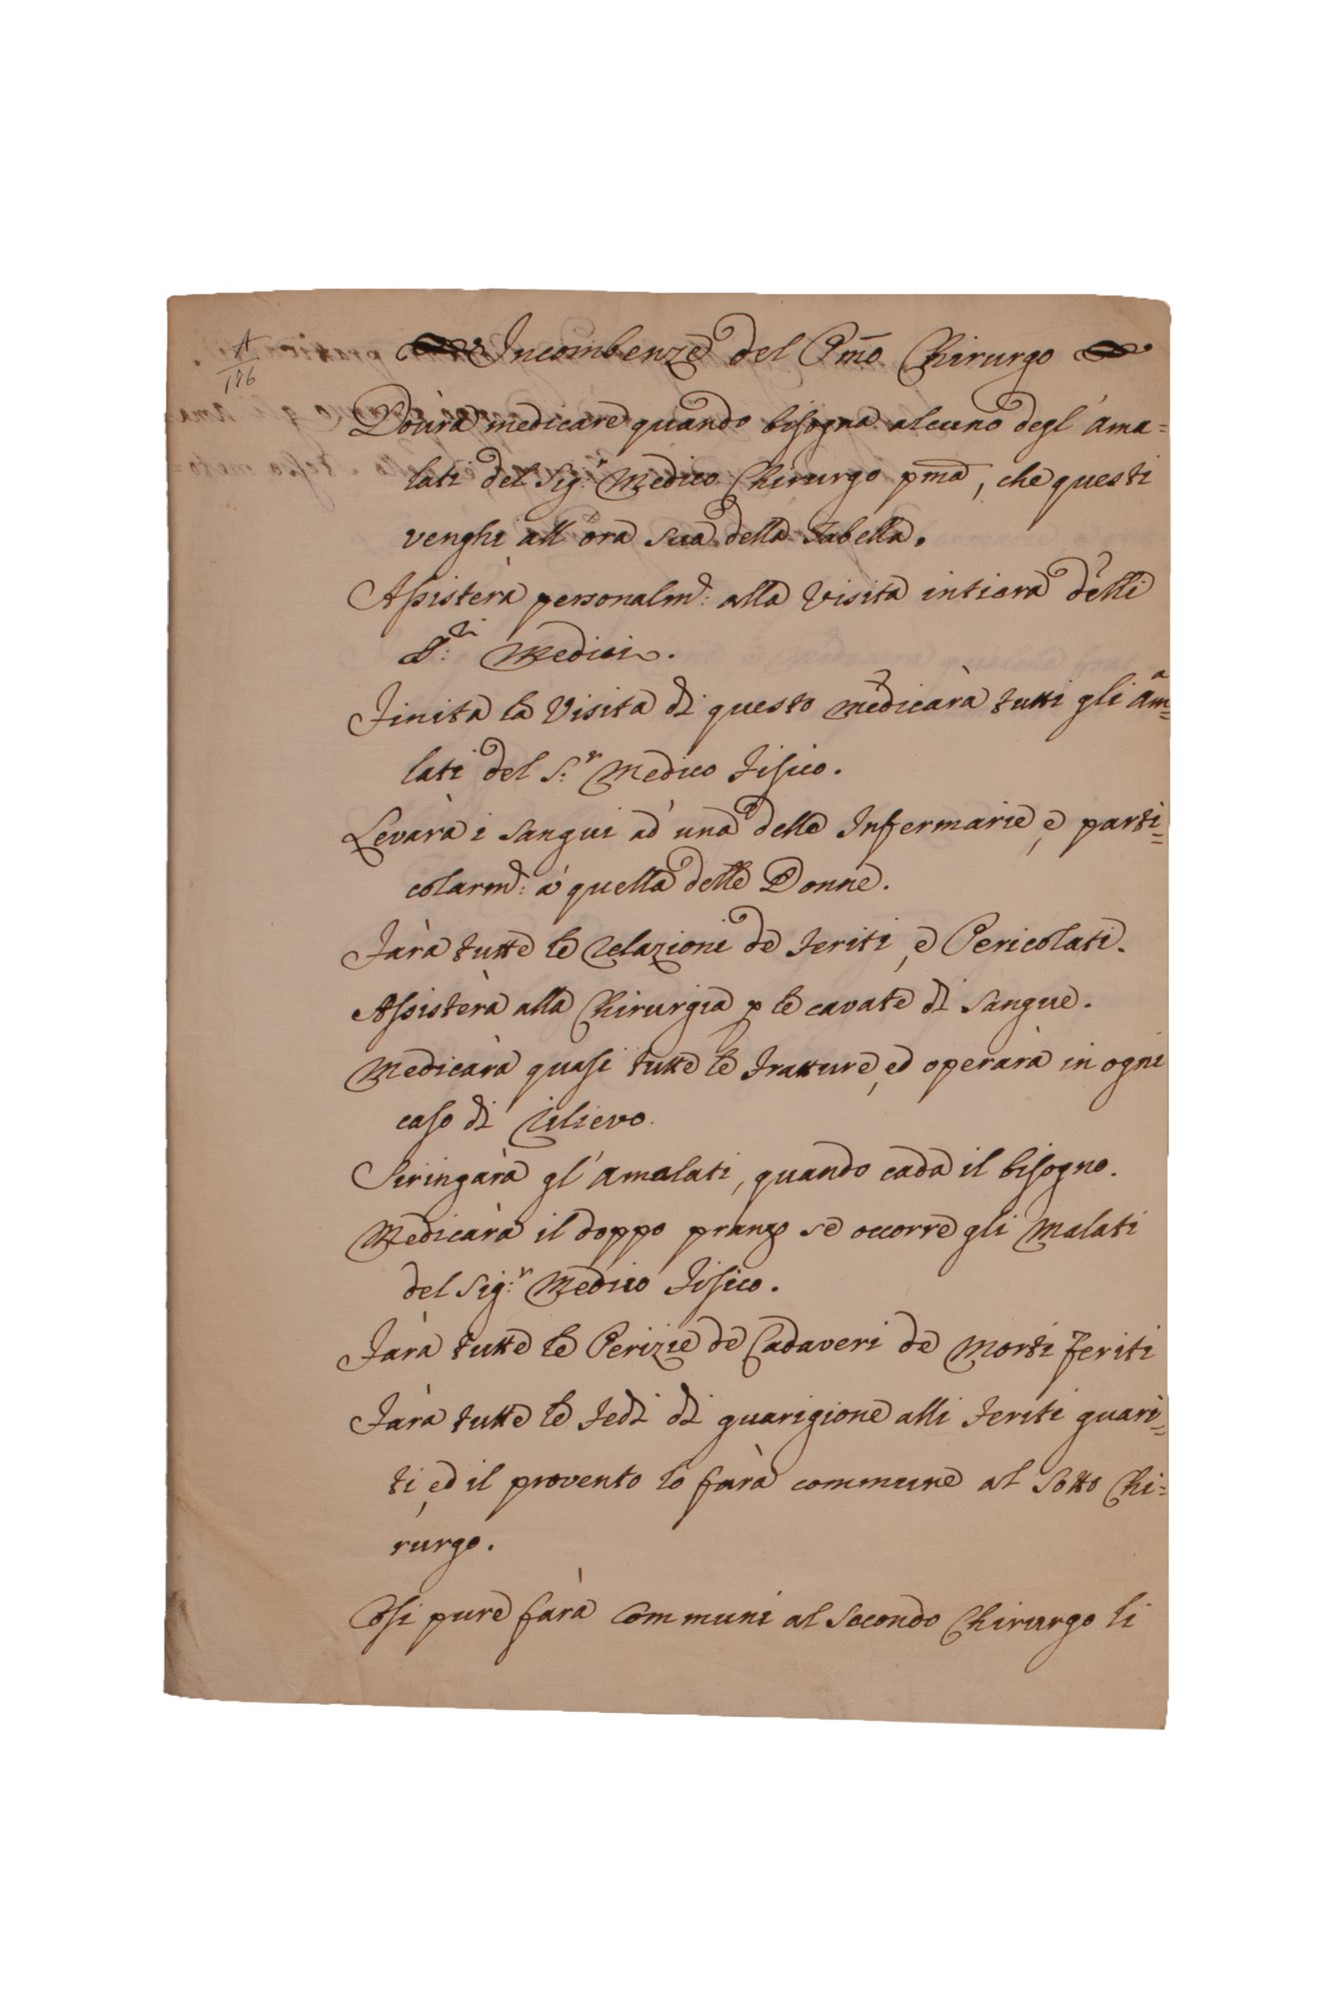 A
176
Incombenze del Pmo Chirurgo
Dovrà medicare quando bisogna alcuno degl'ama=
lati del Sig.r Medico Chirurgo pma, che questi
venghi all'ora sua della Tabella.
Assisterà personalm.e alla Visita intiara delli
S.ri Medici.
Finita la Visita di questo medicarà tutti gli am=
lati del S.r Medico Fisico.
Levarà i sangui ad una delle Infermarie, e parti=
colarm.e a' quella delle Donne.
Farà tutte le relazioni de feriti, e Pericolati.
Assisterà alla Chirurgia p le cavate di Sangue.
Medicarà quasi tutte le fratture, ed operarà in ogni
caso di rilievo.
Siringarà gl'amalati, quando cada il bisogno.
Medicarà il doppo pranzo se occorre gli Malati
del Sig.r Medico Fisico.
Farà tutte le Perizie de Cadaveri de Morti feriti
Farà tutte le fedi di guarigione alli feriti guari=
ti, ed il provento lo farà commune al Sotto Chi=
rurgo.
Cosi pure farà Communi al Secondo Chirurgo li